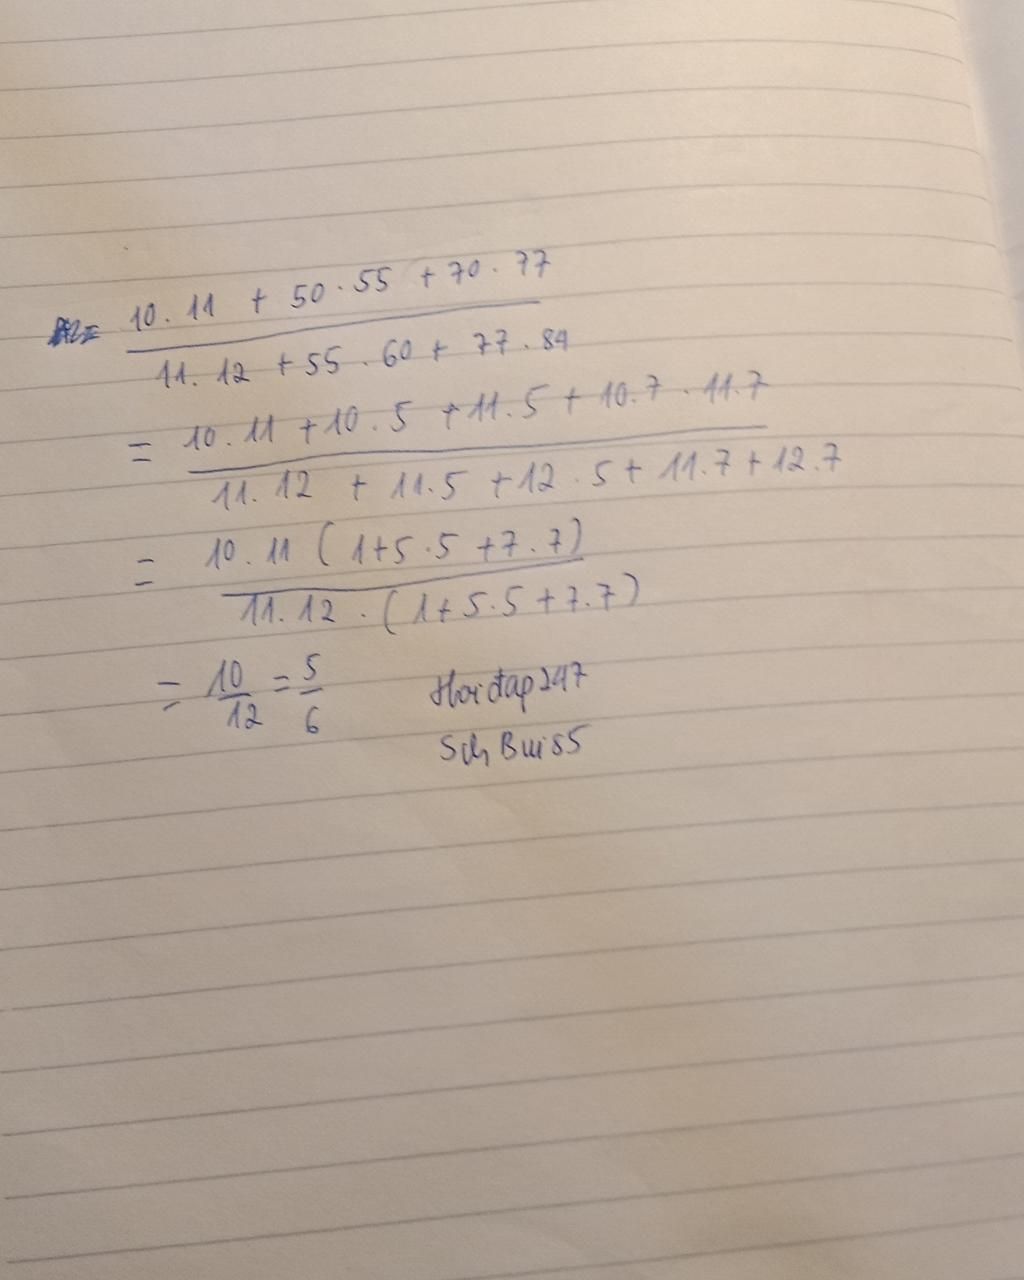 10 . 11 + 50 . 55 + 70 . 77
11 . 12 + 55 . 60 + 77 . 84
= 10 . 11 + 10 . 5 + 11 . 5 + 10 . 7 . 11 . 7
11 . 12 + 11 . 5 + 12 . 5 + 11 . 7 + 12 . 7
= 10 . 11 ( 1 + 5 . 5 + 7 . 7 )
11 . 12 . ( 1 + 5 . 5 + 7 . 7 )
= 10 = 5
12 6
Hoidap247